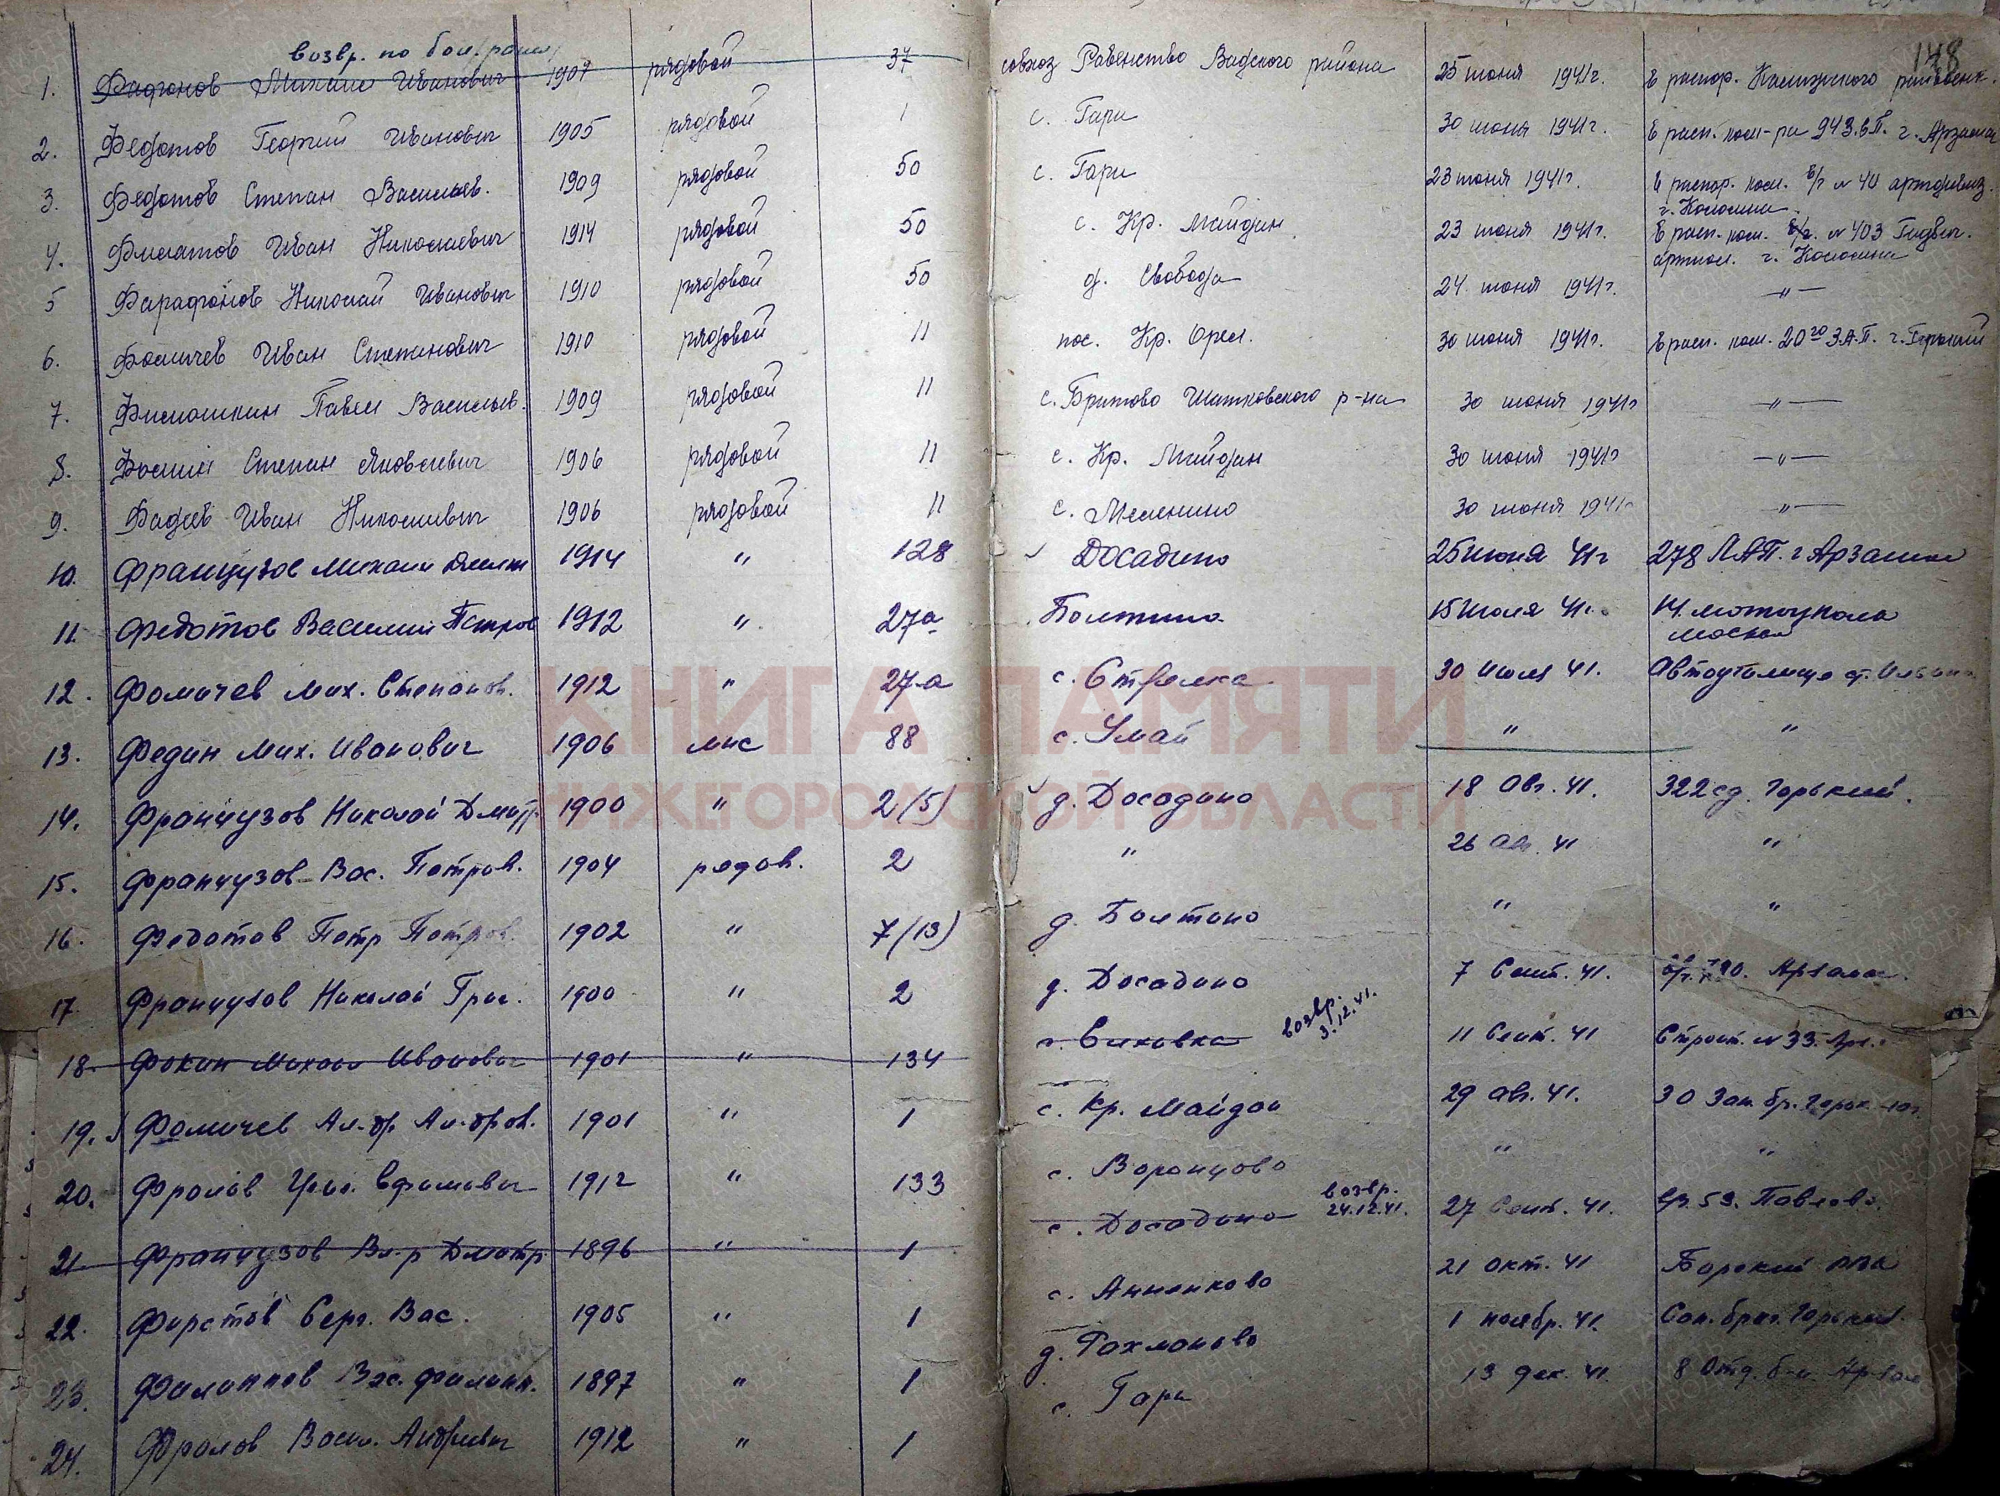 148
возвр. по бол. (рана)
1. Фадронов Михаил Иванович 1907 рядовой 37 совхоз Равенство Вадского района 25 июня 1941г. В распор.
2. Федотов Георгий Иванович 1905 рядовой 1 с. Гари 30 июня 1941г. В расп. ком-ра 943 г. Арзамас
3. Федотов Степан Васильев. 1909 рядовой 50 с. Гари 23 июня 1941г. В распор. ком. в/г № 40
г. Коломна
4. Филатов Иван Николаевич 1914 рядовой 50 с. Кр. Майдан 23 июня 1941г. В расп. ком. в/г. № 403
г. Коломна
5 Фарафонов Николай Иванович 1910 рядовой 50 д. Свобода 24 июня 1941г. —"—
6. Фомичев Иван Степанович 1910 рядовой 11 пос. Кр. Орел. 30 июня 1941г. В расп. ком. 20го З.А.П. г. Горький
7. Филюшкин Павел Васильев. 1909 рядовой 11 с. Бритово Шатковского р-на 30 июня 1941г —"—
8. Фомин Степан Яковлевич 1906 рядовой 11 с. Кр. Майдан 30 июня 1941г —"—
9. Фадеев Иван Николаевич 1906 рядовой 11 с. Меленино 30 июня 1941г —"—
10. Французов Михаил 1914 " 128 Досадино 25 июня 41г 278 ЛАП. г Арзамас
11. Федотов Василий Петров 1912 " 27а Болтино 15 июля 41г. 14. мотоциклп
Москва
12. Фомичев Мих. Степанов. 1912 " 27а с. Стрелка 30 июля 41. Автоучилище ст.
13. Федин Мих. Иванович 1906 мнс 88 с. Умай " "
14. Французов Николай Дмитр. 1900 " 2(5) д. Досадино 18 Авг. 41. 322 сд. Горький.
15. Французов Вас. Петров. 1904 рядов. 2 " 26 Ав. 41 "
16. Федотов Петр Петров. 1902 " 7(13) д. Болтино " "
17. Французов Николай Григ. 1900 " 2 д. Досадино 7 Сент. 41. Арзамас.
18. Фокин Михаил Иванович 1901 " 134 возвр. 3.12.41. 11 Сент. 41 Строит. № 33. Арз.
19. Фомичев Ал-др Ал-дров. 1901 " 1 с. Кр. Майдан 29 ав. 41. 30 Зап. бр. Горьк.
20. Фролов Григ. Ефимович 1912 " 133 с. Воронцово " "
21 Французов Вл-р Дмитр. 1896 " 1 с. Досадино возвр. 24.12.41. 27 Сент. 41. 53. Павлово.
22. Фирстов Серг. Вас. 1905 " 1 с. Анненково 21 окт. 41
23. Филиппов Вас. Филипп. 1897 " 1 д. Рахманово 1 ноябр. 41. Сап. бриг. Горький.
24. Фролов Васил. Андреевич 1912 " 1 с. Гари 13 дек. 41. 8 Отд. б-н. Арзам
КНИГА ПАМЯТИ
НИЖЕГОРОДСКОЙ ОБЛАСТИ